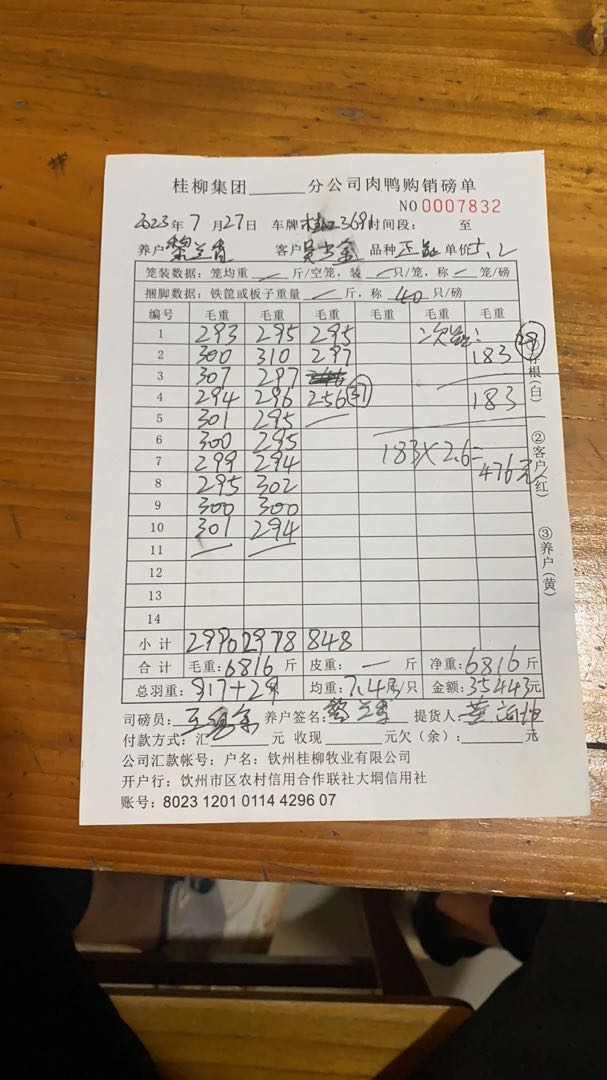 桂柳集团______分公司肉鸭购销磅单
NO 0007832
2023年 7 月 27日 车牌 桂 3691 时间段: 至
养户 黎兰青 客户 品种 正品 单价 5.2
笼装数据: 笼均重 — 斤/空笼, 装 — 只/笼, 称 — 笼/磅
捆脚数据: 铁筐或板子重量 — 斤, 称 40 只/磅
编号 毛重 毛重 毛重 毛重 毛重 毛重
1 293 295 295 次品:
2 300 310 297 183 29
3 307 297
4 294 296 256 37 183
5 301 295 —
6 300 295
7 299 294 183×2.6=
8 295 302 476元
9 300 300
10 301 294
11 — —
12
13
14
小计 2990 2978 848
合计 毛重: 6816 斤 皮重: — 斤 净重: 6816 斤
总羽重: 917+29 均重: 7.4斤/只 金额: 35443元
①存根(白)
②客户(红)
③养户(黄)
司磅员: 养户签名: 黎兰青 提货人:
付款方式: 汇______元 收现______元欠(余):______元
公司汇款帐号: 户名: 钦州桂柳牧业有限公司
开户行: 钦州市区农村信用合作联社大垌信用社
账号: 8023 1201 0114 4296 07